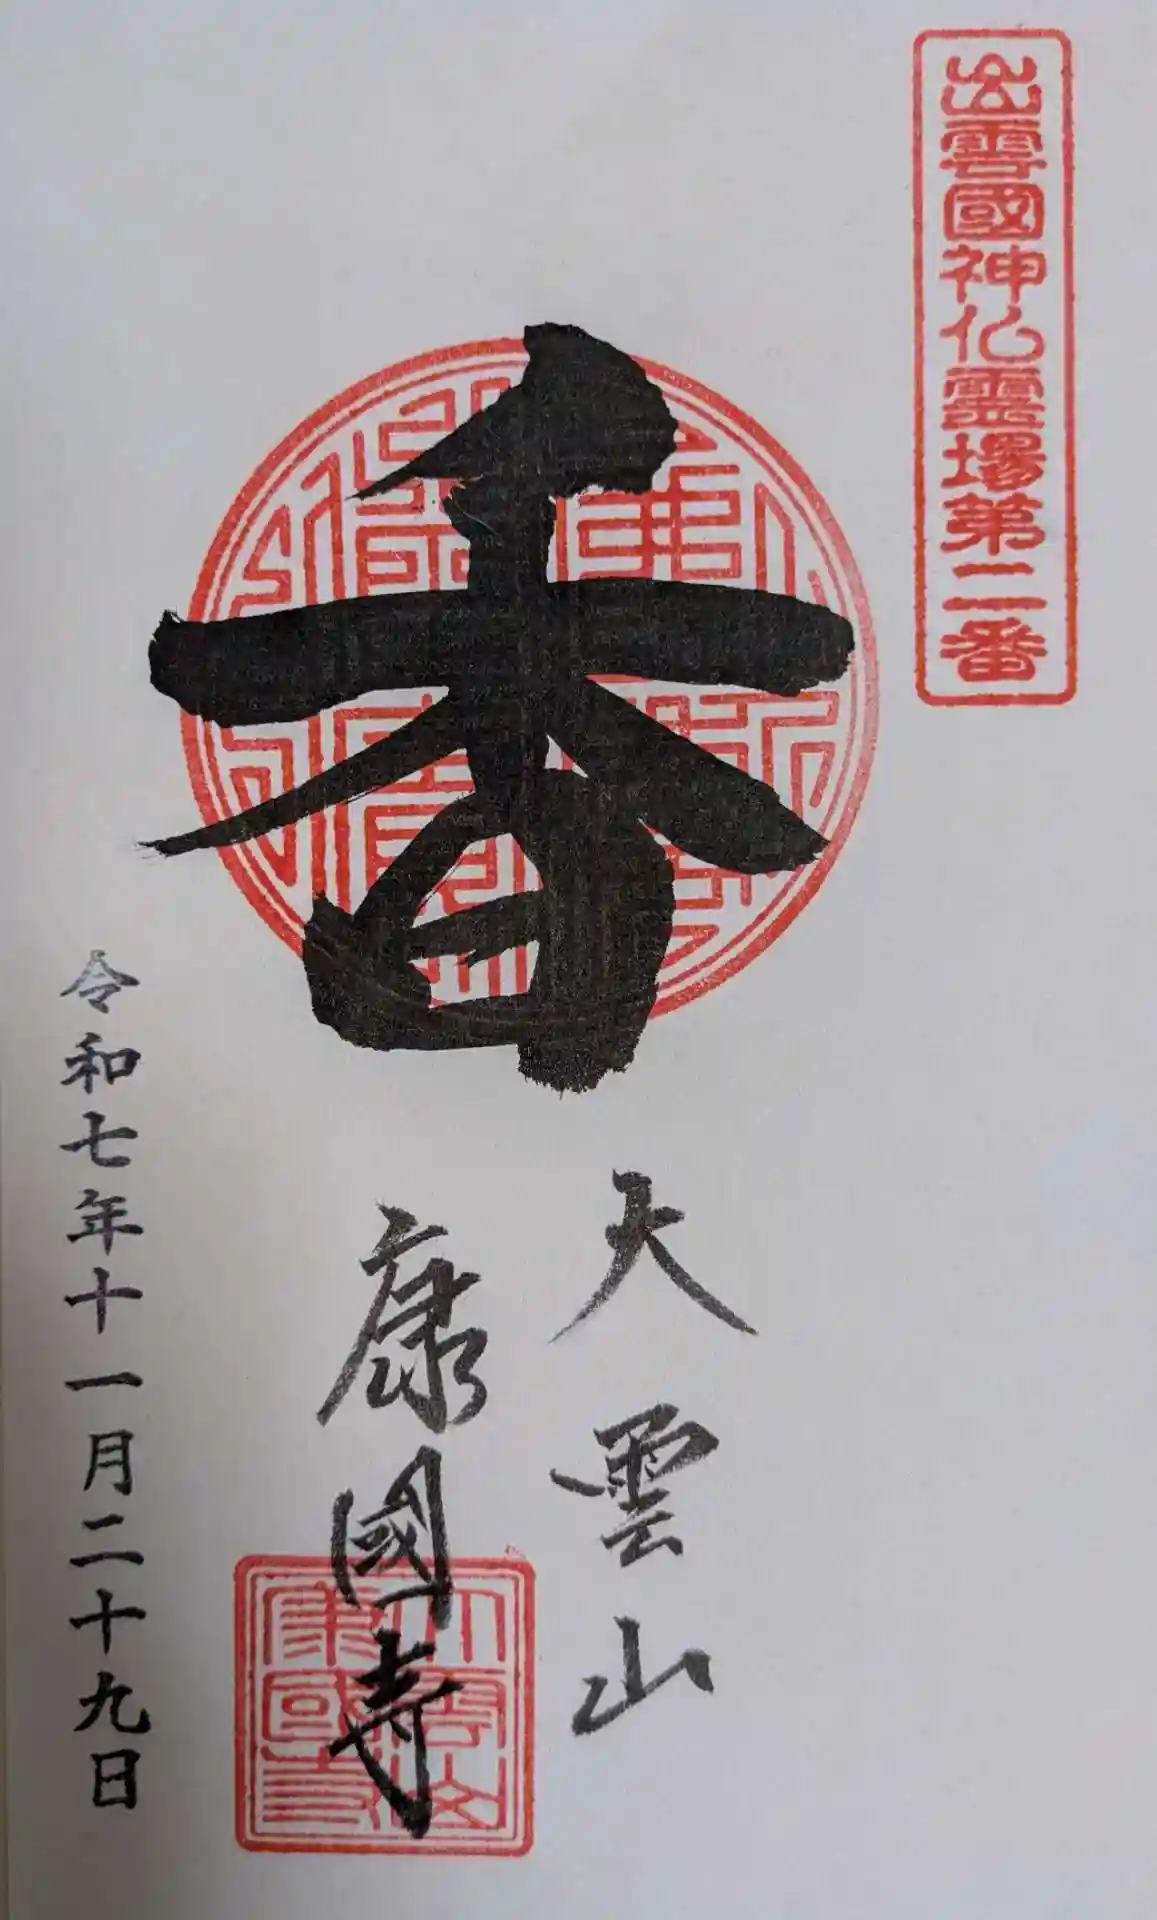 出雲國神仏霊場第二番
香
大雲山
康國寺
令和七年十一月二十九日
大雲山
康國寺